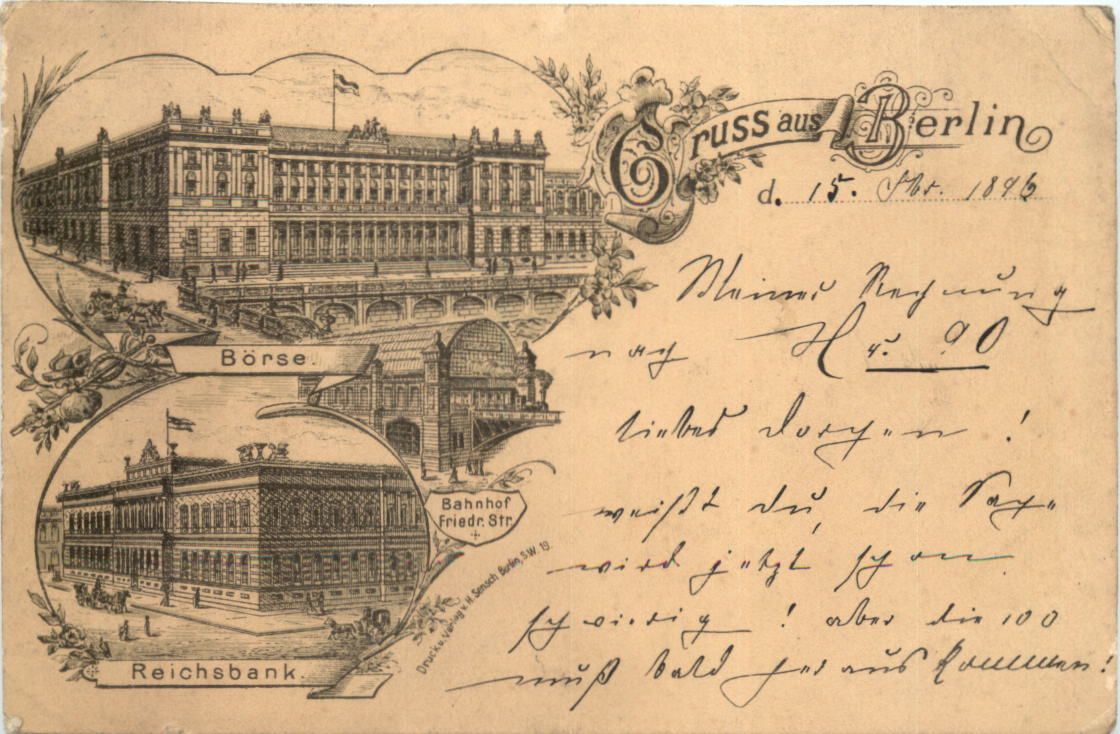 Gruss aus Berlin
d. 15. 1896
Meiner Rechnung
nach N 90
liebes Dorchen!
weißt du, die Sache
wird jetzt schon
schwierig! aber die 100
muß bald heraus kommen!
Börse.
Bahnhof
Friedr. Str.
Reichsbank.
Druck u. Verlag v. H. Sensch, Berlin, S.W 19.